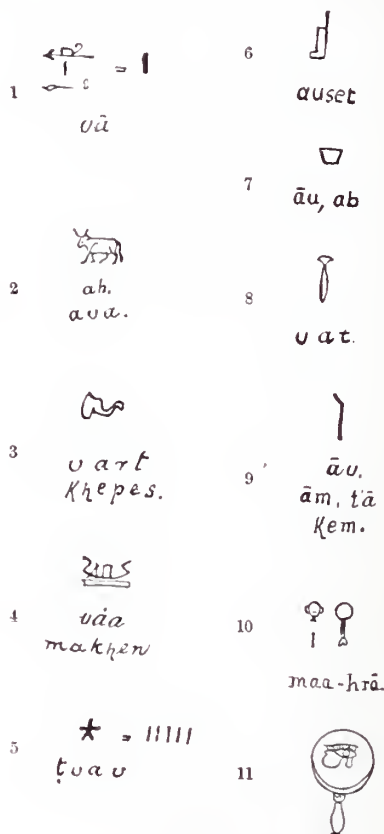 1
= I
vā
2
ah.
ava.
3
vart
Khepes.
4
váa
makhen
5
= IIIII
ṭvav
6
auset
7
āu, ab
8
vat.
9
āv.
ām, t'ā
Kem.
10
maa-hrā.
11